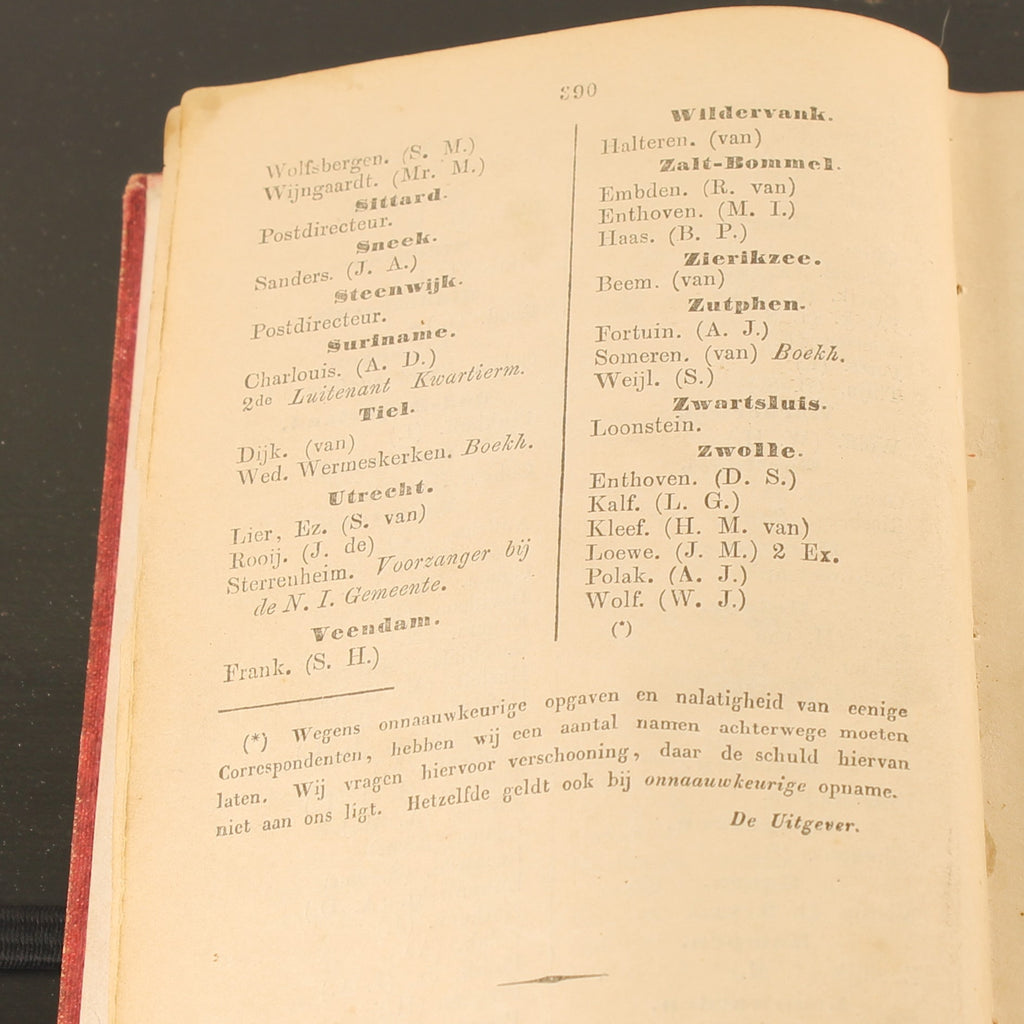 390
Wolfsbergen. (S. M.)
Wijngaardt. (Mr. M.)
Sittard.
Postdirecteur.
Sneek.
Sanders. (J. A.)
Steenwijk.
Postdirecteur.
Suriname.
Charlouis. (A. D.)
2de Luitenant Kwartierm.
Tiel.
Dijk. (van)
Wed. Wermeskerken. Boekh.
Utrecht.
Lier, Ez. (S. van)
Rooij. (J. de)
Sterrenheim. Voorzanger bij
de N. I. Gemeente.
Veendam.
Frank. (S. H.)
Wildervank.
Halteren. (van)
Zalt-Bommel.
Embden. (R. van)
Enthoven. (M. I.)
Haas. (B. P.)
Zierikzee.
Beem. (van)
Zutphen.
Fortuin. (A. J.)
Someren. (van) Boekh.
Weijl. (S.)
Zwartsluis.
Loonstein.
Zwolle.
Enthoven. (D. S.)
Kalf. (L. G.)
Kleef. (H. M. van)
Loewe. (J. M.) 2 Ex.
Polak. (A. J.)
Wolf. (W. J.)
(*)
(*) Wegens onnaauwkeurige opgaven en nalatigheid van eenige
Correspondenten, hebben wij een aantal namen achterwege moeten
laten. Wij vragen hiervoor verschooning, daar de schuld hiervan
niet aan ons ligt. Hetzelfde geldt ook bij onnaauwkeurige opname.
De Uitgever.